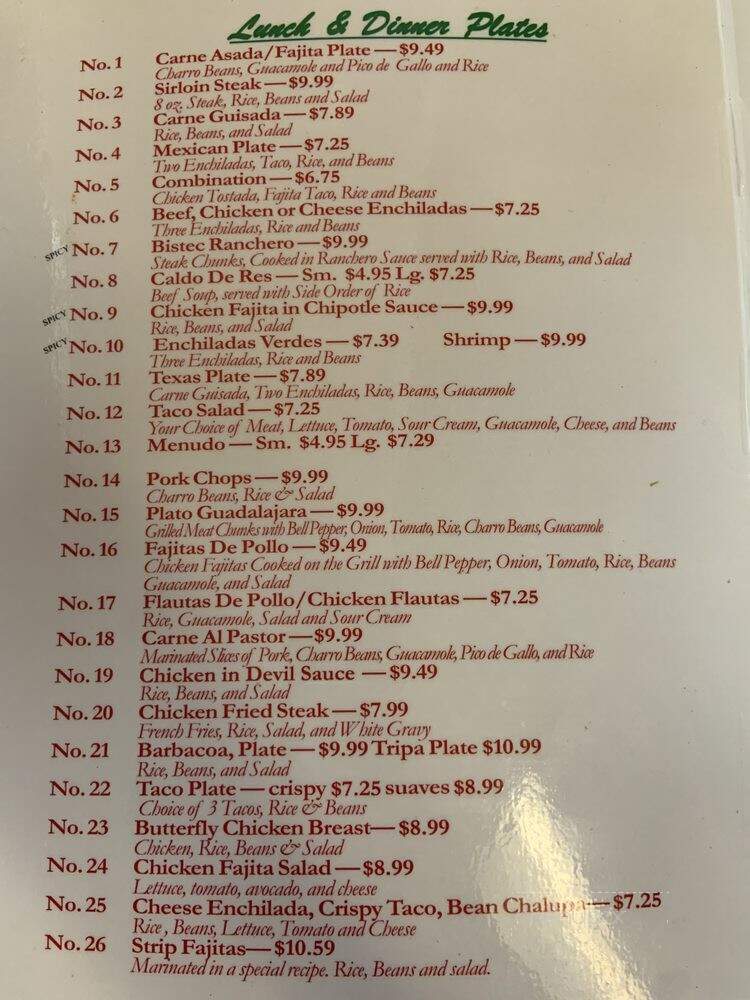 Lunch & Dinner Plates
No. 1 Carne Asada/Fajita Plate — $9.49
Charro Beans, Guacamole and Pico de Gallo and Rice
No. 2 Sirloin Steak — $9.99
8 oz. Steak, Rice, Beans and Salad
No. 3 Carne Guisada — $7.89
Rice, Beans, and Salad
No. 4 Mexican Plate — $7.25
Two Enchiladas, Taco, Rice, and Beans
No. 5 Combination — $6.75
Chicken Tostada, Fajita Taco, Rice and Beans
No. 6 Beef, Chicken or Cheese Enchiladas — $7.25
Three Enchiladas, Rice and Beans
SPICY No. 7 Bistec Ranchero — $9.99
Steak Chunks, Cooked in Ranchero Sauce served with Rice, Beans, and Salad
No. 8 Caldo De Res — Sm. $4.95 Lg. $7.25
Beef Soup, served with Side Order of Rice
SPICY No. 9 Chicken Fajita in Chipotle Sauce — $9.99
Rice, Beans, and Salad
SPICY No. 10 Enchiladas Verdes — $7.39 Shrimp — $9.99
Three Enchiladas, Rice and Beans
No. 11 Texas Plate — $7.89
Carne Guisada, Two Enchiladas, Rice, Beans, Guacamole
No. 12 Taco Salad — $7.25
Your Choice of Meat, Lettuce, Tomato, Sour Cream, Guacamole, Cheese, and Beans
No. 13 Menudo — Sm. $4.95 Lg. $7.29
No. 14 Pork Chops — $9.99
Charro Beans, Rice & Salad
No. 15 Plato Guadalajara — $9.99
Grilled Meat Chunks with Bell Pepper, Onion, Tomato, Rice, Charro Beans, Guacamole
No. 16 Fajitas De Pollo — $9.49
Chicken Fajitas Cooked on the Grill with Bell Pepper, Onion, Tomato, Rice, Beans
Guacamole, and Salad
No. 17 Flautas De Pollo/Chicken Flautas — $7.25
Rice, Guacamole, Salad and Sour Cream
No. 18 Carne Al Pastor — $9.99
Marinated Slices of Pork, Charro Beans, Guacamole, Pico de Gallo, and Rice
No. 19 Chicken in Devil Sauce — $9.49
Rice, Beans, and Salad
No. 20 Chicken Fried Steak — $7.99
French Fries, Rice, Salad, and White Gravy
No. 21 Barbacoa, Plate — $9.99 Tripa Plate $10.99
Rice, Beans, and Salad
No. 22 Taco Plate — crispy $7.25 suaves $8.99
Choice of 3 Tacos, Rice & Beans
No. 23 Butterfly Chicken Breast— $8.99
Chicken, Rice, Beans & Salad
No. 24 Chicken Fajita Salad — $8.99
Lettuce, tomato, avocado, and cheese
No. 25 Cheese Enchilada, Crispy Taco, Bean Chalupa — $7.25
Rice, Beans, Lettuce, Tomato and Cheese
No. 26 Strip Fajitas— $10.59
Marinated in a special recipe. Rice, Beans and salad.